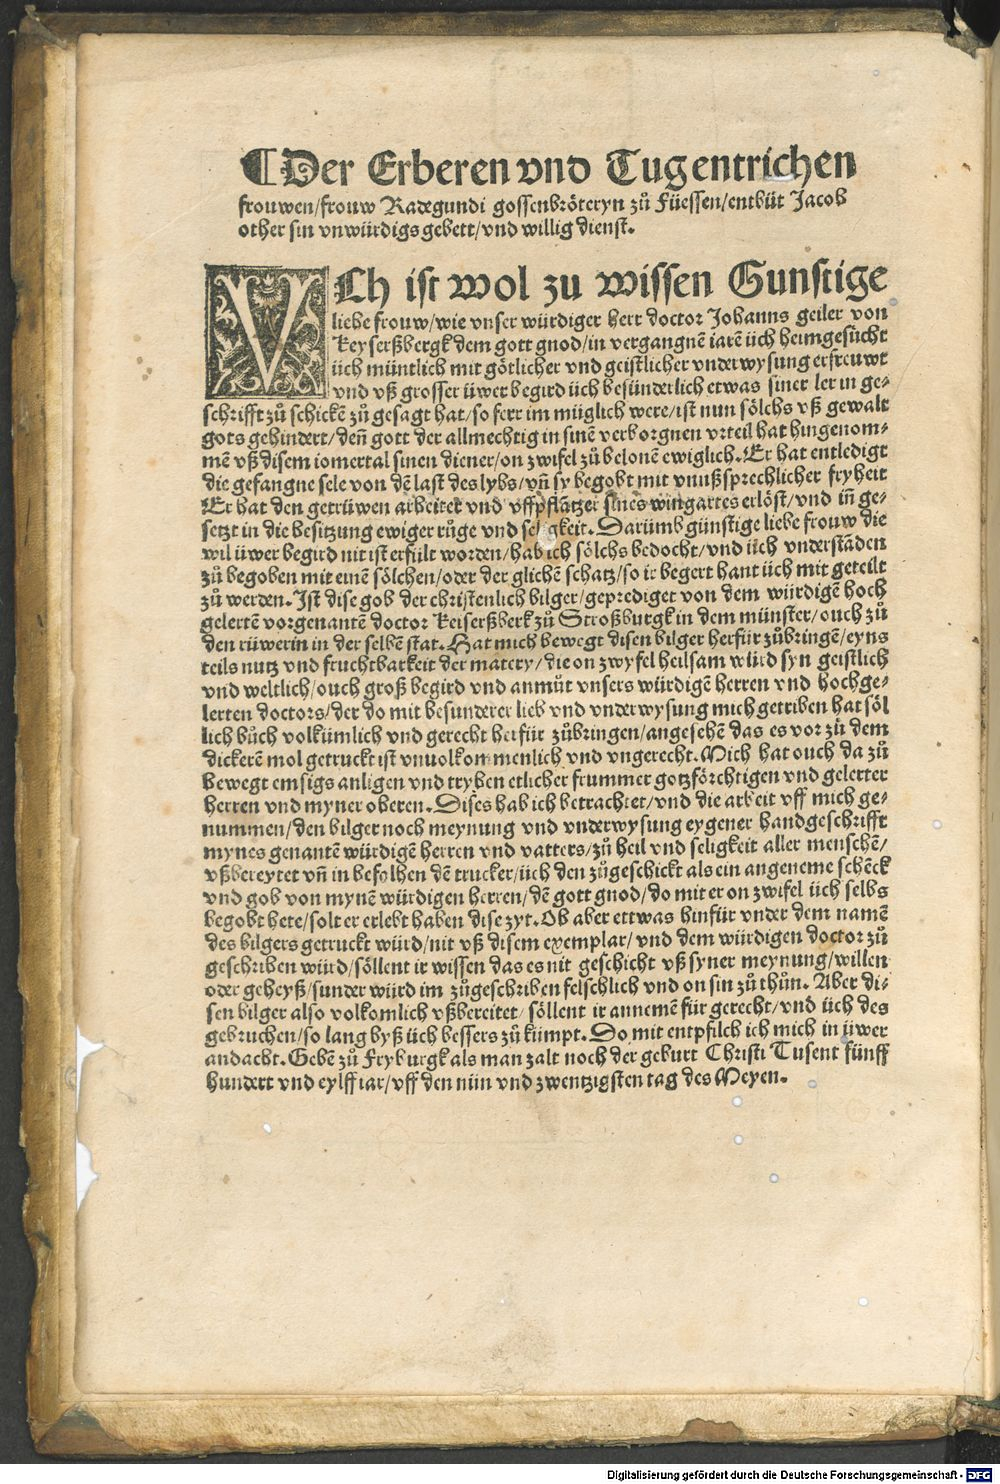 ¶ Der Erberen vnd Tugentrichen
frouwen/frouw Radegundi gossenbröteryn zů Füessen/entbüt Jacob
other sin vnwürdigs gebett/vnd willig dienst.
VCh ist wol zu wissen Gunstige
liebe frouw/wie vnser würdiger herr doctor Johanns geiler von
keyserßbergk dem gott gnod/in vergangnē iarē üch heimgesücht
üch müntlich mit götlicher vnd geistlicher vnderwysung erfreuwt
vnd vß grosser üwer begird üch besünderlich etwas siner ler in ge⸗
schrifft zů schickē zů gesagt hat/so ferr im müglich were/ist nun sölchs vß gewalt
gots gehindert/deñ gott der allmechtig in sinē verborgnen vrteil hat hingenom⸗
mē vß disem iomertal sinen diener/on zwifel zů belonē ewiglich. Er hat entledigt
die gefangne sele von dē last des lybs/vñ sy begobt mit vnußsprechlicher fryheit
Er hat den getrüwen arbeiter vnd vffpflātzer sines wingartes erlöst/vnd iñ ge⸗
setzt in die besitzung ewiger růge vnd seligkeit. Darümb günstige liebe frouw die
wil üwer begird nit ist erfült worden/hab ich sölchs bedocht/vnd üch vnderstāden
zů begoben mit einē sölchen/oder der glichē schatz/so ir begert hant üch mit geteilt
zů werden. Ist dise gob der christenlich bilger/geprediget von dem würdigē hoch
gelertē vorgenantē doctor keiserßberk zů Stroßburgk in dem münster/ouch zů
den rüwerin in der selbē stat. Hat mich bewegt disen bilger herfür zůbringē/eyns
teils nutz vnd fruchtbarkeit der matery/die on zwyfel heilsam würd syn geistlich
vnd weltlich/ouch groß begird vnd anmůt vnsers würdigē herren vnd hochge⸗
lerten doctors/der do mit besunderer lieb vnd vnderwysung mich getriben hat söl
lich bůch volkümlich vnd gerecht herfür zůbringen/angesehē das es vor zů dem
dickerē mol getruckt ist vnuolkommenlich vnd vngerecht. Mich hat ouch da zů
bewegt emsigs anligen vnd tryben etlicher frummer gotzförchtigen vnd gelerter
herren vnd myner oberen. Dises hab ich betrachtet/vnd die arbeit vff mich ge⸗
nummen/den bilger noch meynung vnd vnderwysung eygener handgeschrifft
mynes genantē würdigē herren vnd vatters/zů heil vnd seligkeit aller menschē/
vßbereytet vñ in befolhen dē trucker/üch den zůgeschickt als ein angeneme schēck
vnd gob von mynē würdigen herren/dē gott gnod/do mit er on zwifel üch selbs
begobt hete/solt er erlebt haben dise zyt. Ob aber ettwas hinfür vnder dem namē
des bilgers getruckt würd/nit vß disem exemplar/vnd dem würdigen doctor zů
geschriben würd/söllent ir wissen das es nit geschicht vß syner meynung/willen
oder geheyß/sunder würd im zůgeschriben felschlich vnd on sin zů thůn. Aber di⸗
sen bilger also volkomlich vßbereitet/söllent ir annemē für gerecht/vnd üch des
gebruchen/so lang byß üch bessers zů kümpt. Do mit entpfilch ich mich in üwer
andacht. Gebē zů Fryburgk als man zalt noch der geburt Christi Tusent fünff
hundert vnd eylff iar/vff den nün vnd zwentzigsten tag des Meyen.
Digitalisierung gefördert durch die Deutsche Forschungsgemeinschaft - DFG